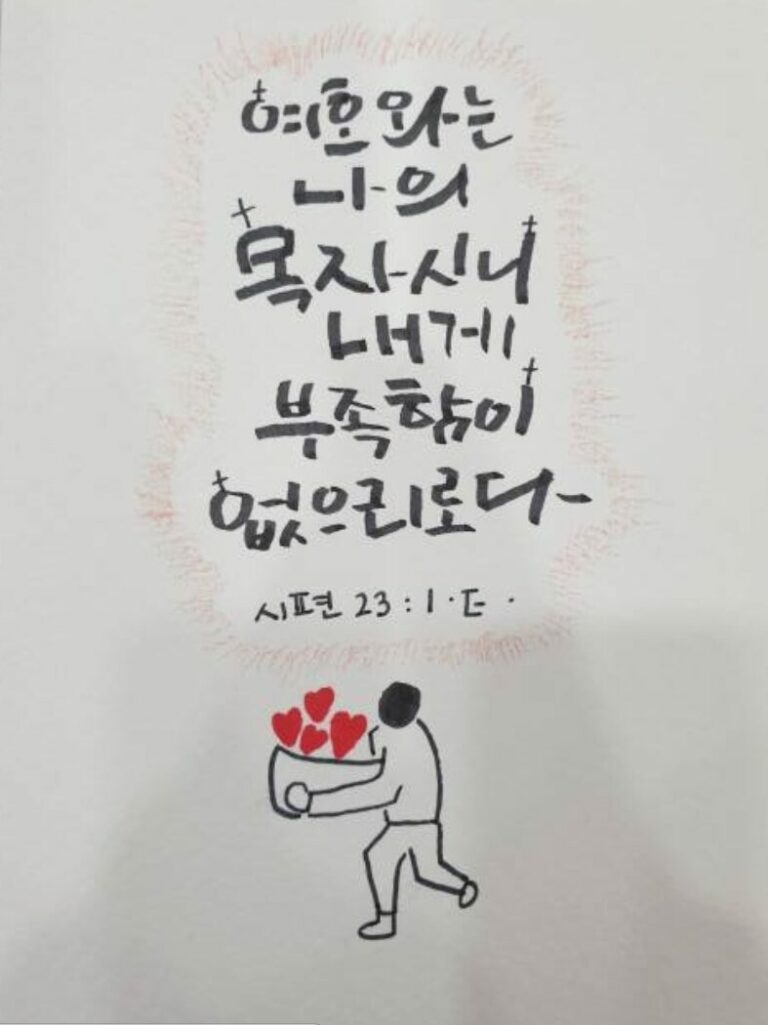 여호와는
나의
목자시니
내게
부족함이
없으리로다
시편 23:1.E.